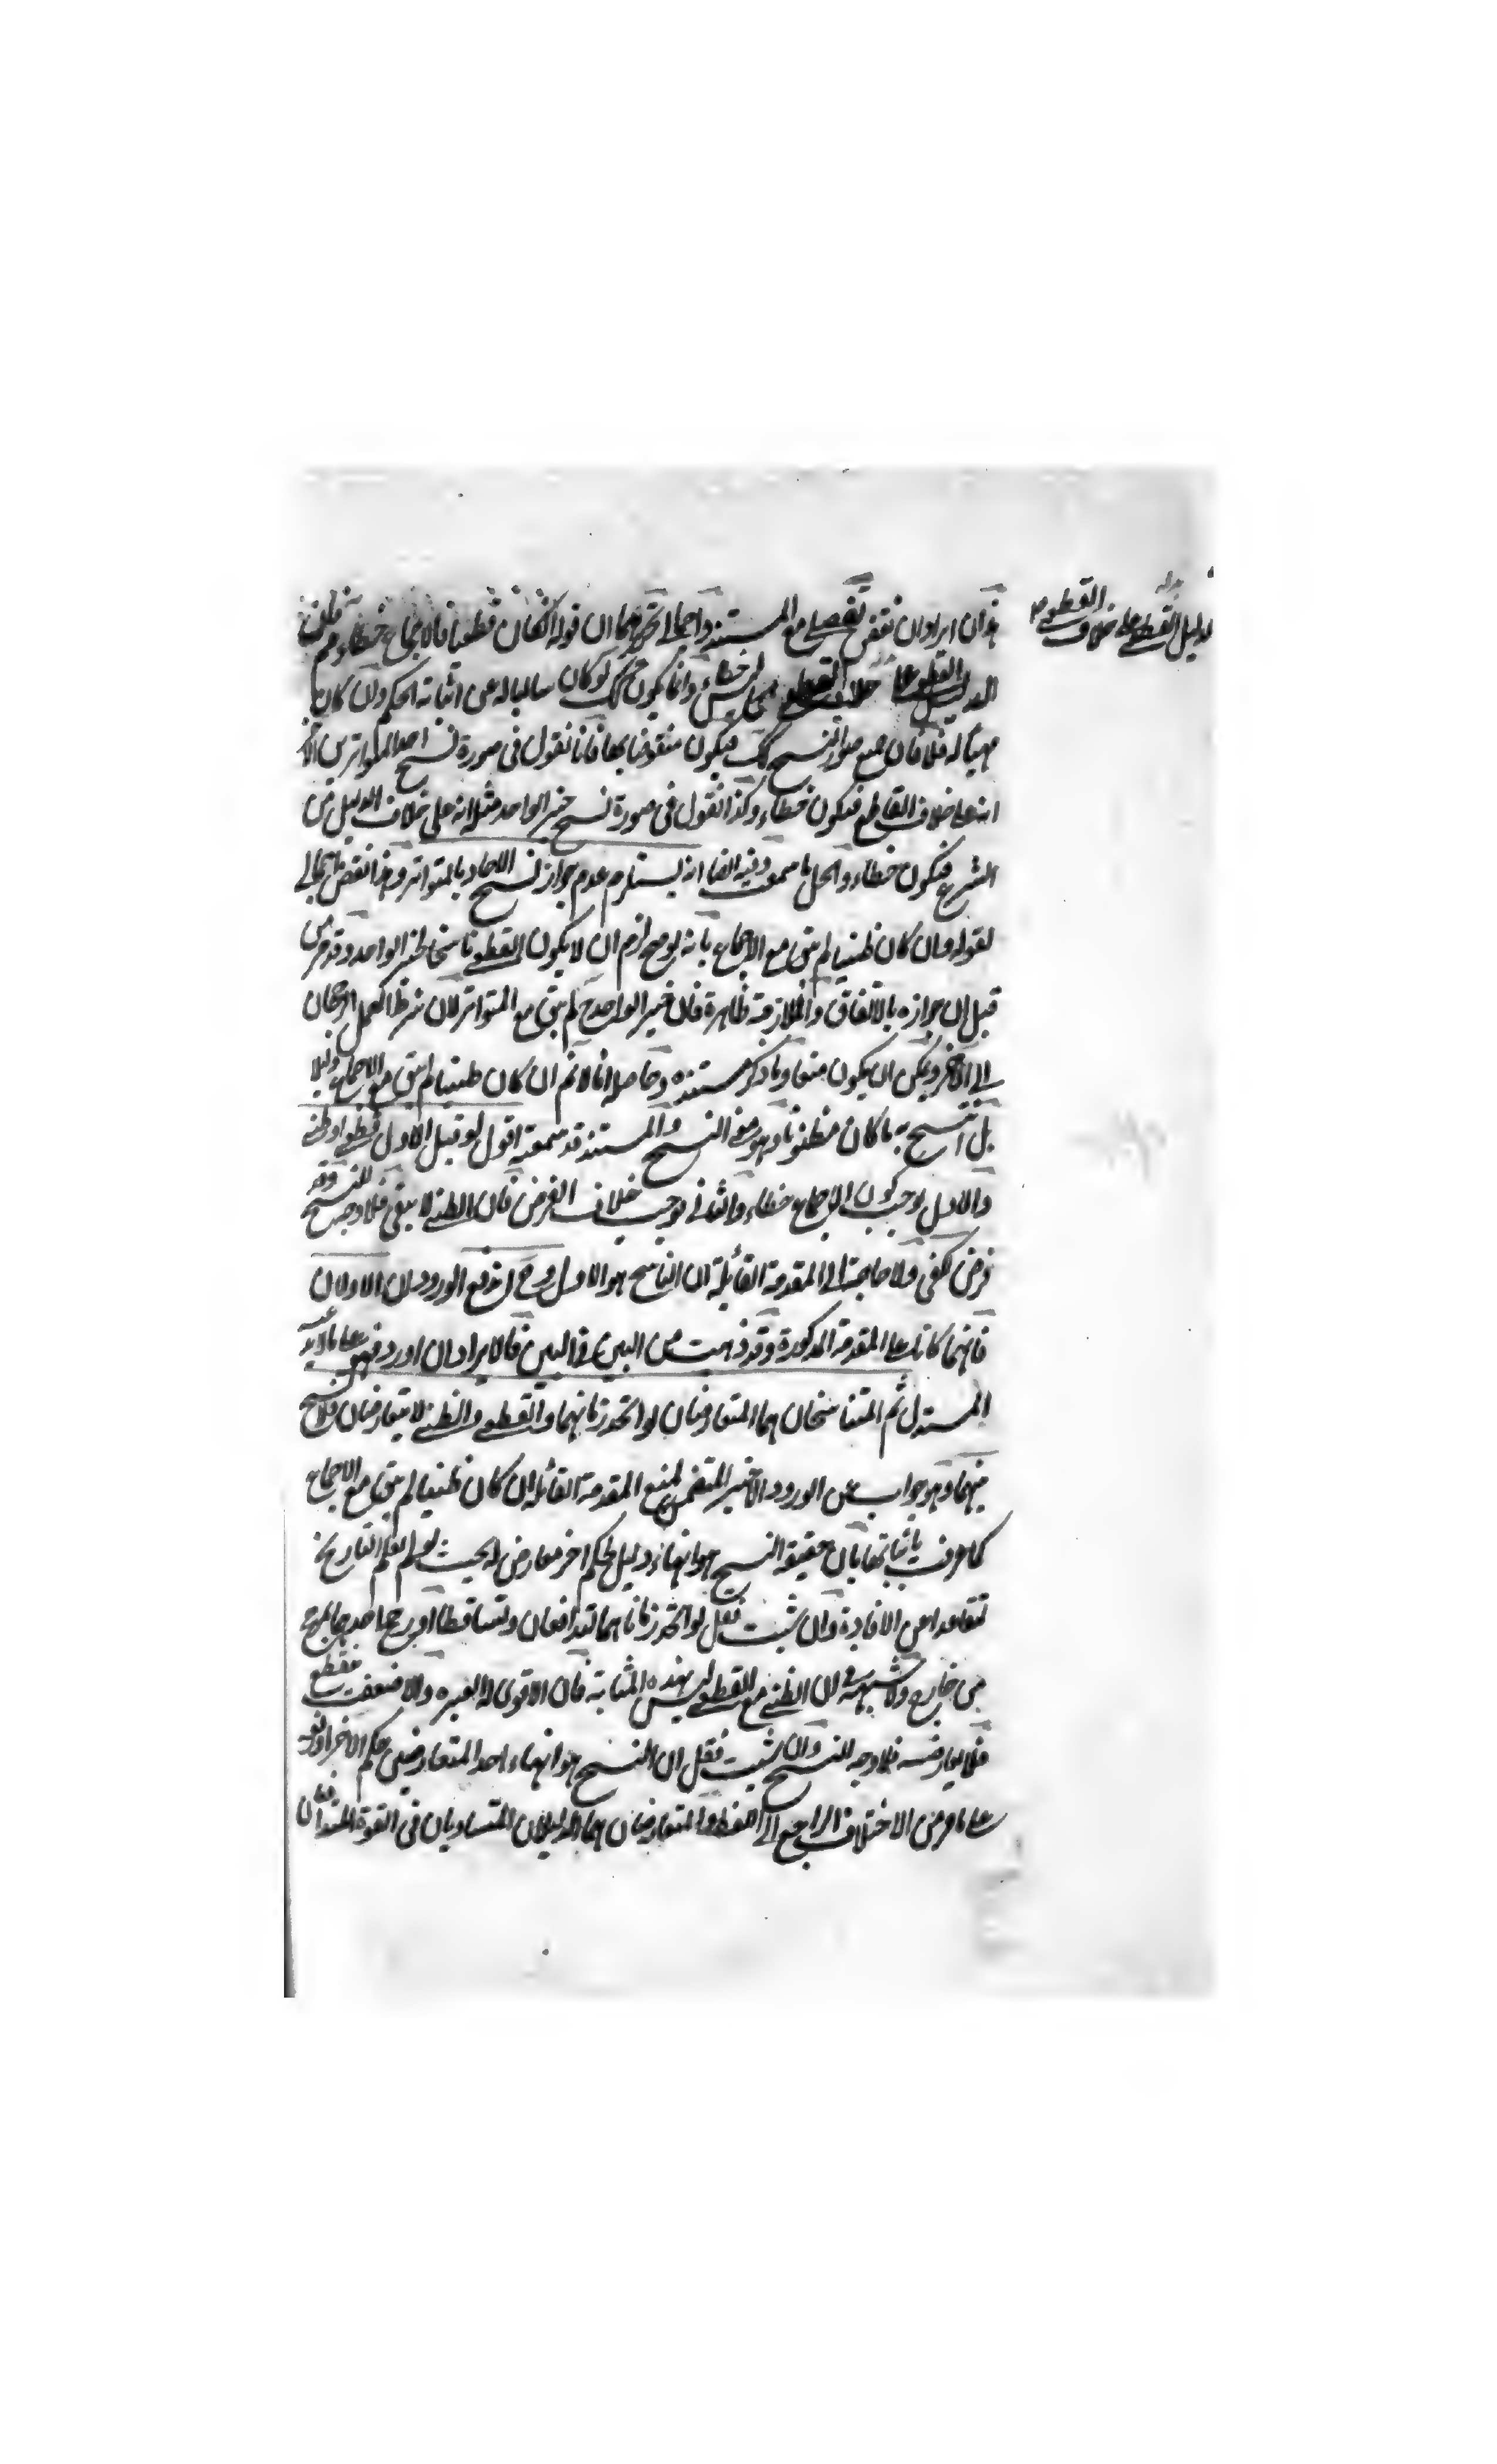 هذان ايرادان نقض تفصيلي مع المستند واجمالي تحريرهما ان قوله ان كان قطعيا فالاجماع خطاء مم
الدليل القطعي على خلاف القطعي ليس خطاء وانما يكون كك لو كان سالبا له عن اثباته الحكم وان كان
فلا فان جميع صور النسخ كك فيكون منقوضا بها فانا نقول في صورة نسخ احد المتواترين
انه على خلاف القاطع فيكون خطاء وكذا نقول في صورة نسخ خبر الواحد مثلا انه على خلاف الدليل من
الشرع فيكون خطاء والحل ما سمعت وفيه ايضا انه يستلزم عدم جواز نسخ الآحاد بالمتواتر وهذا نقض اجمالي
لقوله وان كان ظنيا لم يبق مع الاجماع بانه لو صح لزم ان لا يكون القطعي ناسخا لخبر الواحد وقد مر من
قبل ان جوازه بالاتفاق والملازمة ظاهرة فان خبر الواحد ح لم يبق مع المتواتر لان شرط العمل الرجحان
الى الآخر ويمكن ان يكون منعا وما ذكر مستنده وحاصله انا لا نم ان كان ظنيا لم يبق مع الاجماع دليلا
بل انتسخ به ما كان مظنونا وهو معنى النسخ والمستند قد سمعته اقول لو قيل الاول قطعي او ظني
والاول يوجب كون الاجماع خطاء والثاني يوجب خلاف الفرض فان الظني لا يبقى فلا وجه للنسخ وقد
فرض لكفى ولا حاجة الى المقدمة القائلة ان الناسخ هو الاول وح اندفع الورودان الاولان
فانهما كانا على المقدمة المذكورة وقد ذهبت من البين في البين فالايرادان اوردهما على ما لا يعتبر
المستدل ثم المتناسخان هما المتعارضان لو اتحد زمانهما والقطعي والظني لا يتعارضان فلا نسخ
بينهما وهو جواب عن الورود الاخير المتضمن لمنع المقدمة القائلة ان كان ظنيا لم يبق مع الاجماع
كما عرفت باثباتها بان حقيقة النسخ هو انهاء دليل لحكم اخر معارض له بحيث لو لم يعلم التاريخ
تقاعدا عن الافادة وان شئت فقل لو اتحد زمانهما لتدافعان وتساقطا او يرجح احدهما بمرجح
من خارج ولا شبهة في ان الظني مع القطعي ليس بهذه المثابة فان الاقوى له العبرة والاضعف مقطع
فلا يعارضه فلا وجه للنسخ وان شئت فقل ان النسخ هو انهاء احد المتعارضين حكم الاخر
على ما مر من الاختلاف الراجع الى اللفظ والمتعارضان هما الدليلان المتساويان في القوة المتدافعان
الدليل القطعي على خلاف القطعي